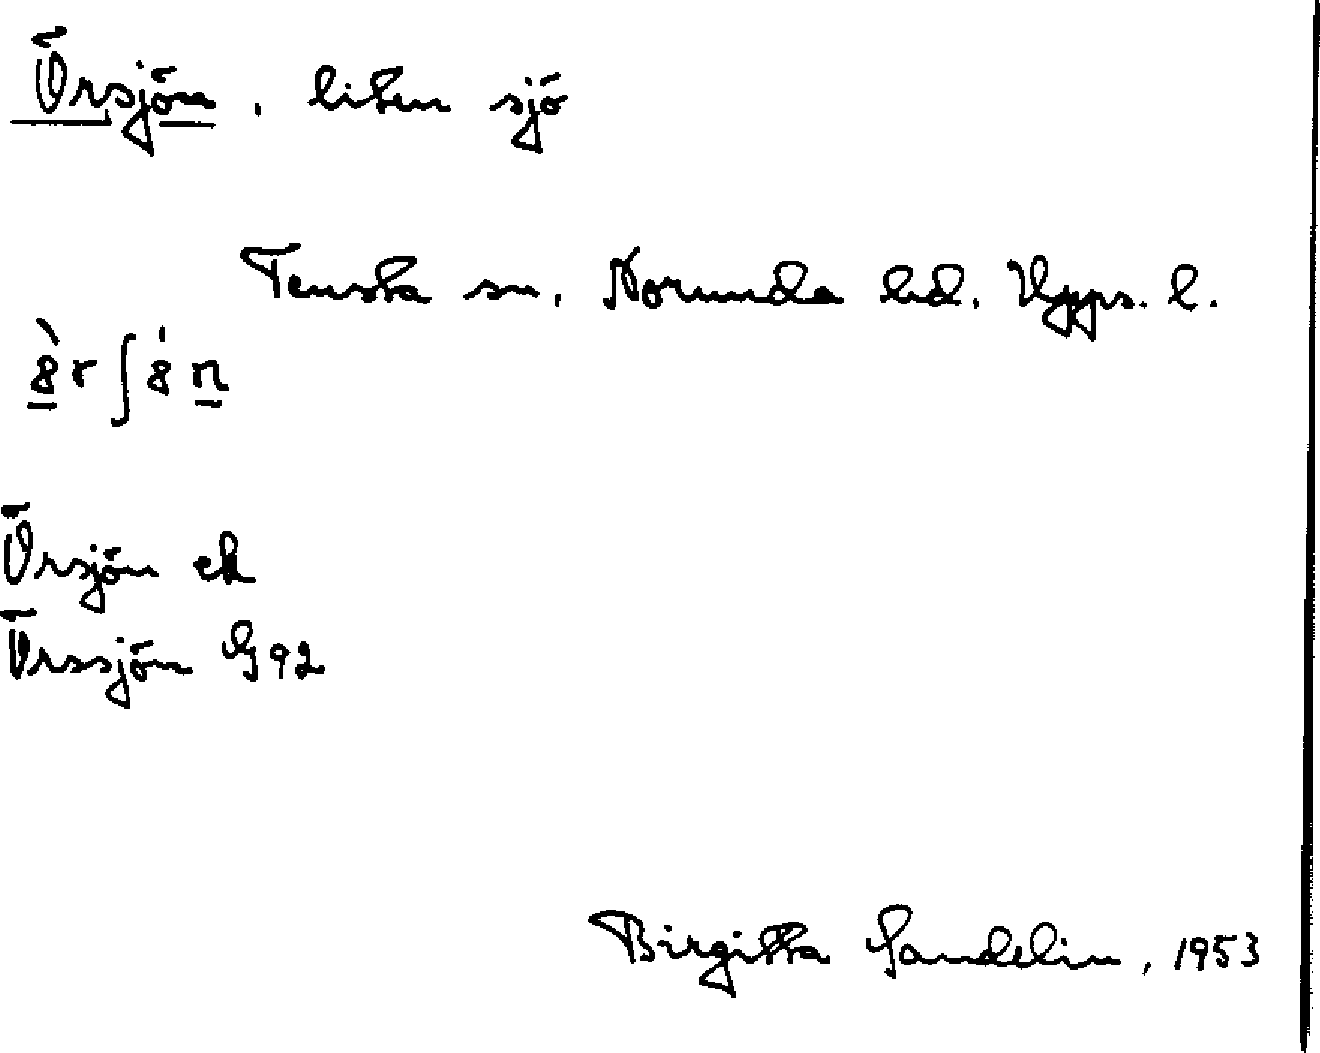 Örsjön, liten sjö
Tensta sn, Norunda hd. Upps. l.
8̀r∫8́n
Örsjön ek
Örssjön G92
Birgitta Sandelin, 1953